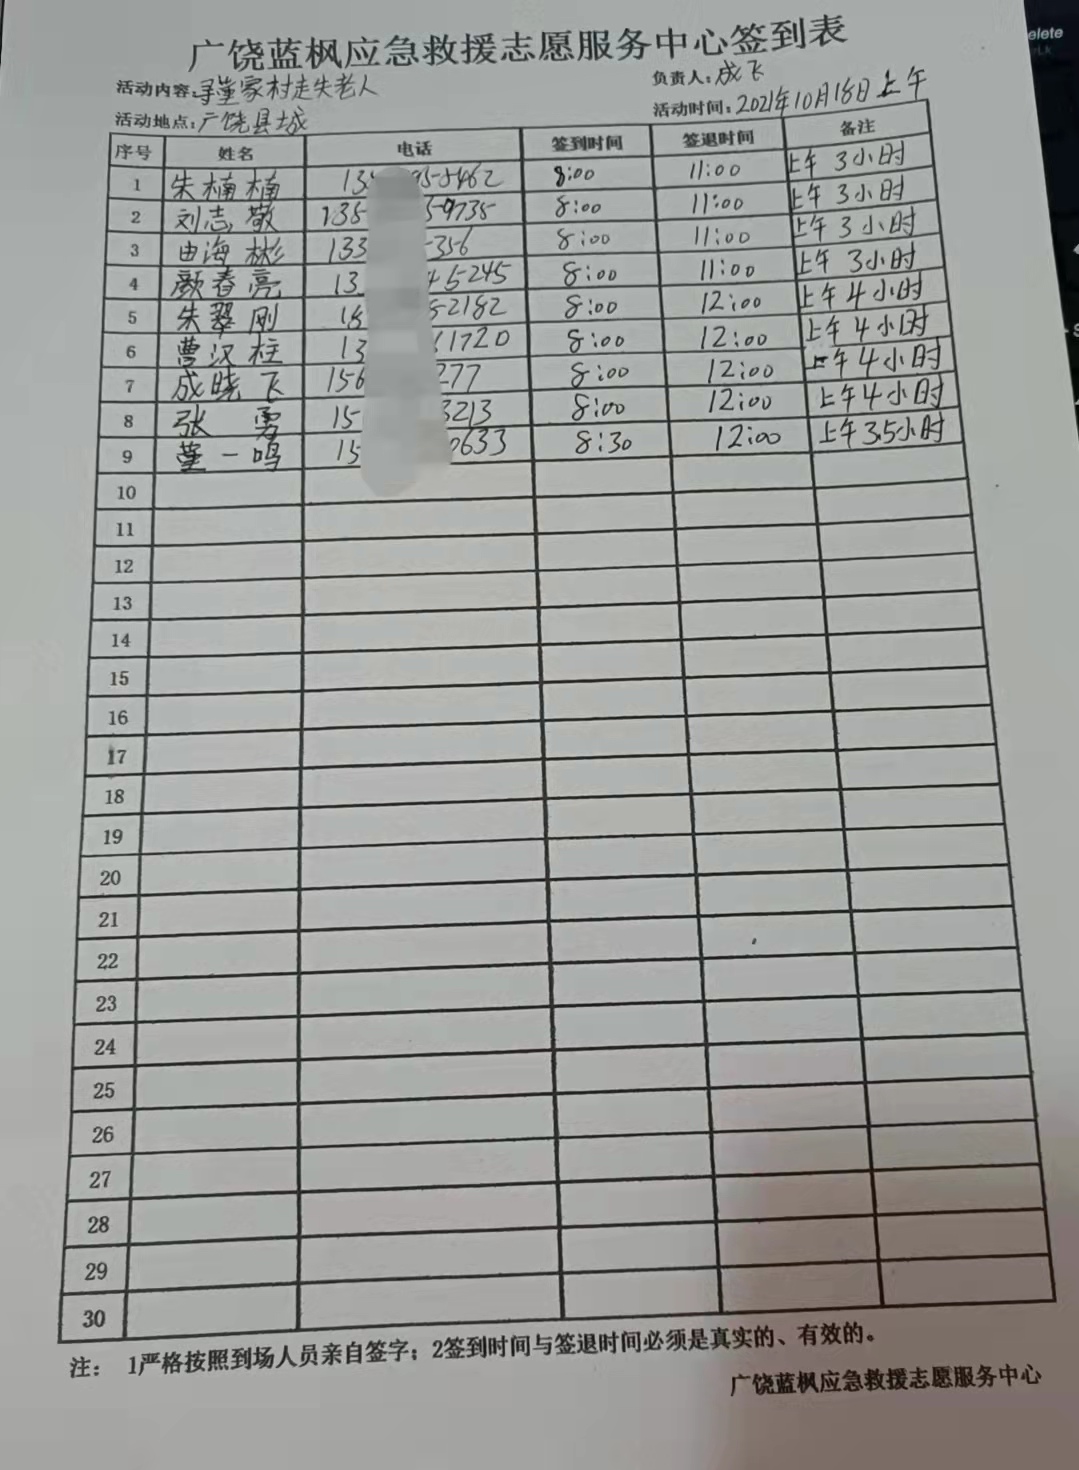 广饶蓝枫应急救援志愿服务中心签到表
活动内容:寻董家村走失老人 负责人:成飞
活动地点:广饶县城 活动时间:2021年10月18日上午
序号 姓名 电话 签到时间 签退时间 备注
1 朱楠楠 8462 8:00 11:00 上午3小时
2 刘志敬 135 9735 8:00 11:00 上午3小时
3 由海彬 133 356 8:00 11:00 上午3小时
4 颜春亮 13 45245 8:00 11:00 上午3小时
5 朱翠刚 2182 8:00 12:00 上午4小时
6 曹汉柱 13 1720 8:00 12:00 上午4小时
7 成晓飞 156 277 8:00 12:00 上午4小时
8 张勇 15 3213 8:00 12:00 上午4小时
9 董一鸣 15 0633 8:30 12:00 上午3.5小时
10
11
12
13
14
15
16
17
18
19
20
21
22
23
24
25
26
27
28
29
30
注: 1严格按照到场人员亲自签字;2签到时间与签退时间必须是真实的、有效的。
广饶蓝枫应急救援志愿服务中心